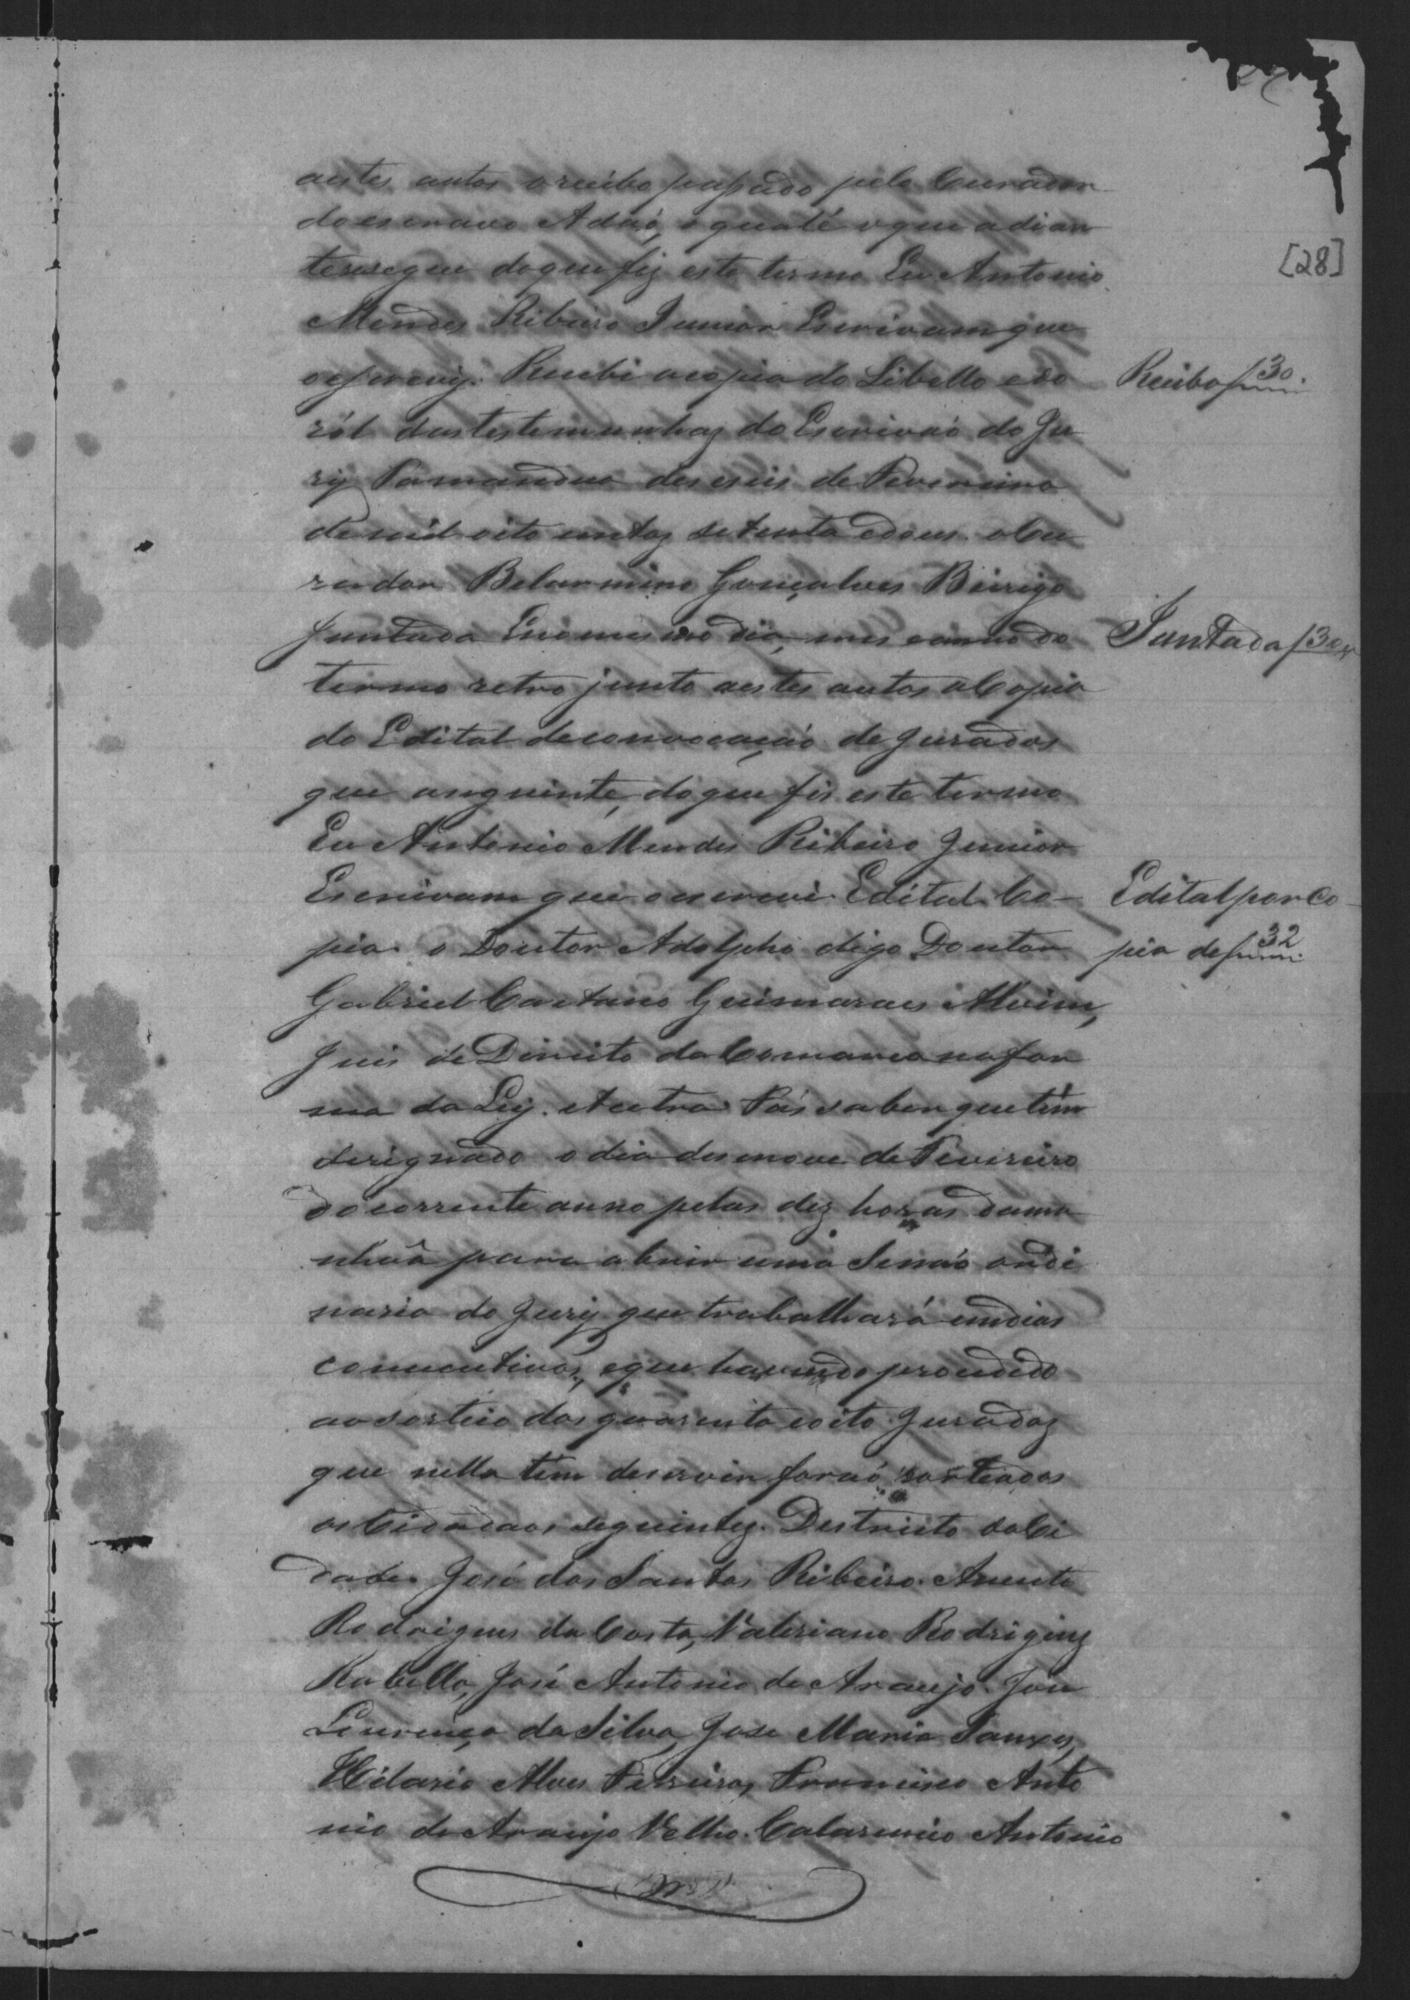 [28]
aestes autos o recibo passado pelo Curador
do escravo Adaó, o qual é o que adian
te se segue do que fiz este termo Eu Antonio
Mendes Ribeiro Junior Escrivam que
o escrevy. Recebi a copia do Libello e do
ról das testemunhas do Escrivaó do Ju
ry Tamandua deseseis de Fevereiro
de mil oito centos setenta e dous. o Cu
rador Belarmino Gonçalves
Juntada Em o mesmo dia, mes e anno do
termo retro junto aestes autos a Copia
do Edital de convocaçaó de jurados
que ao seguinte, do que fis este termo
Eu Antonio Mendes Ribeiro Junior
Escrivam que o escrevi. Edital. Co-
pia. o Doutor Adolpho digo Doutor
Gabriel Caetano Guimaraes Alvim,
Juis de Direito da Comarca na for
ma da Ley. Faz saber que tem
designado o dia desenove de Fevereiro
do corrente anno pelas dez horas da ma
nhaã para abrir uma Sessaó ordi
naria do Jury que trabalhará em dias
consecutivos, e que havendo procedido
ao sorteio dos quarenta e oito Jurados
que nella tem de servir foraó sorteados
os Cidadaos seguintes. Destricto da Ci
dade. José dos Santos Ribeiro.
Rodrigues da Costa, Valeriano Rodrigues
Rabello, José Antonio de Araujo. José
Lourenço da Silva, Jose Maria
Hilario Alves Ferreira, Francisco Anto
nio de Araujo Velho. Antonio
Recibo f 30.
Juntada f 30v
Edital por Co-
pia de f 32